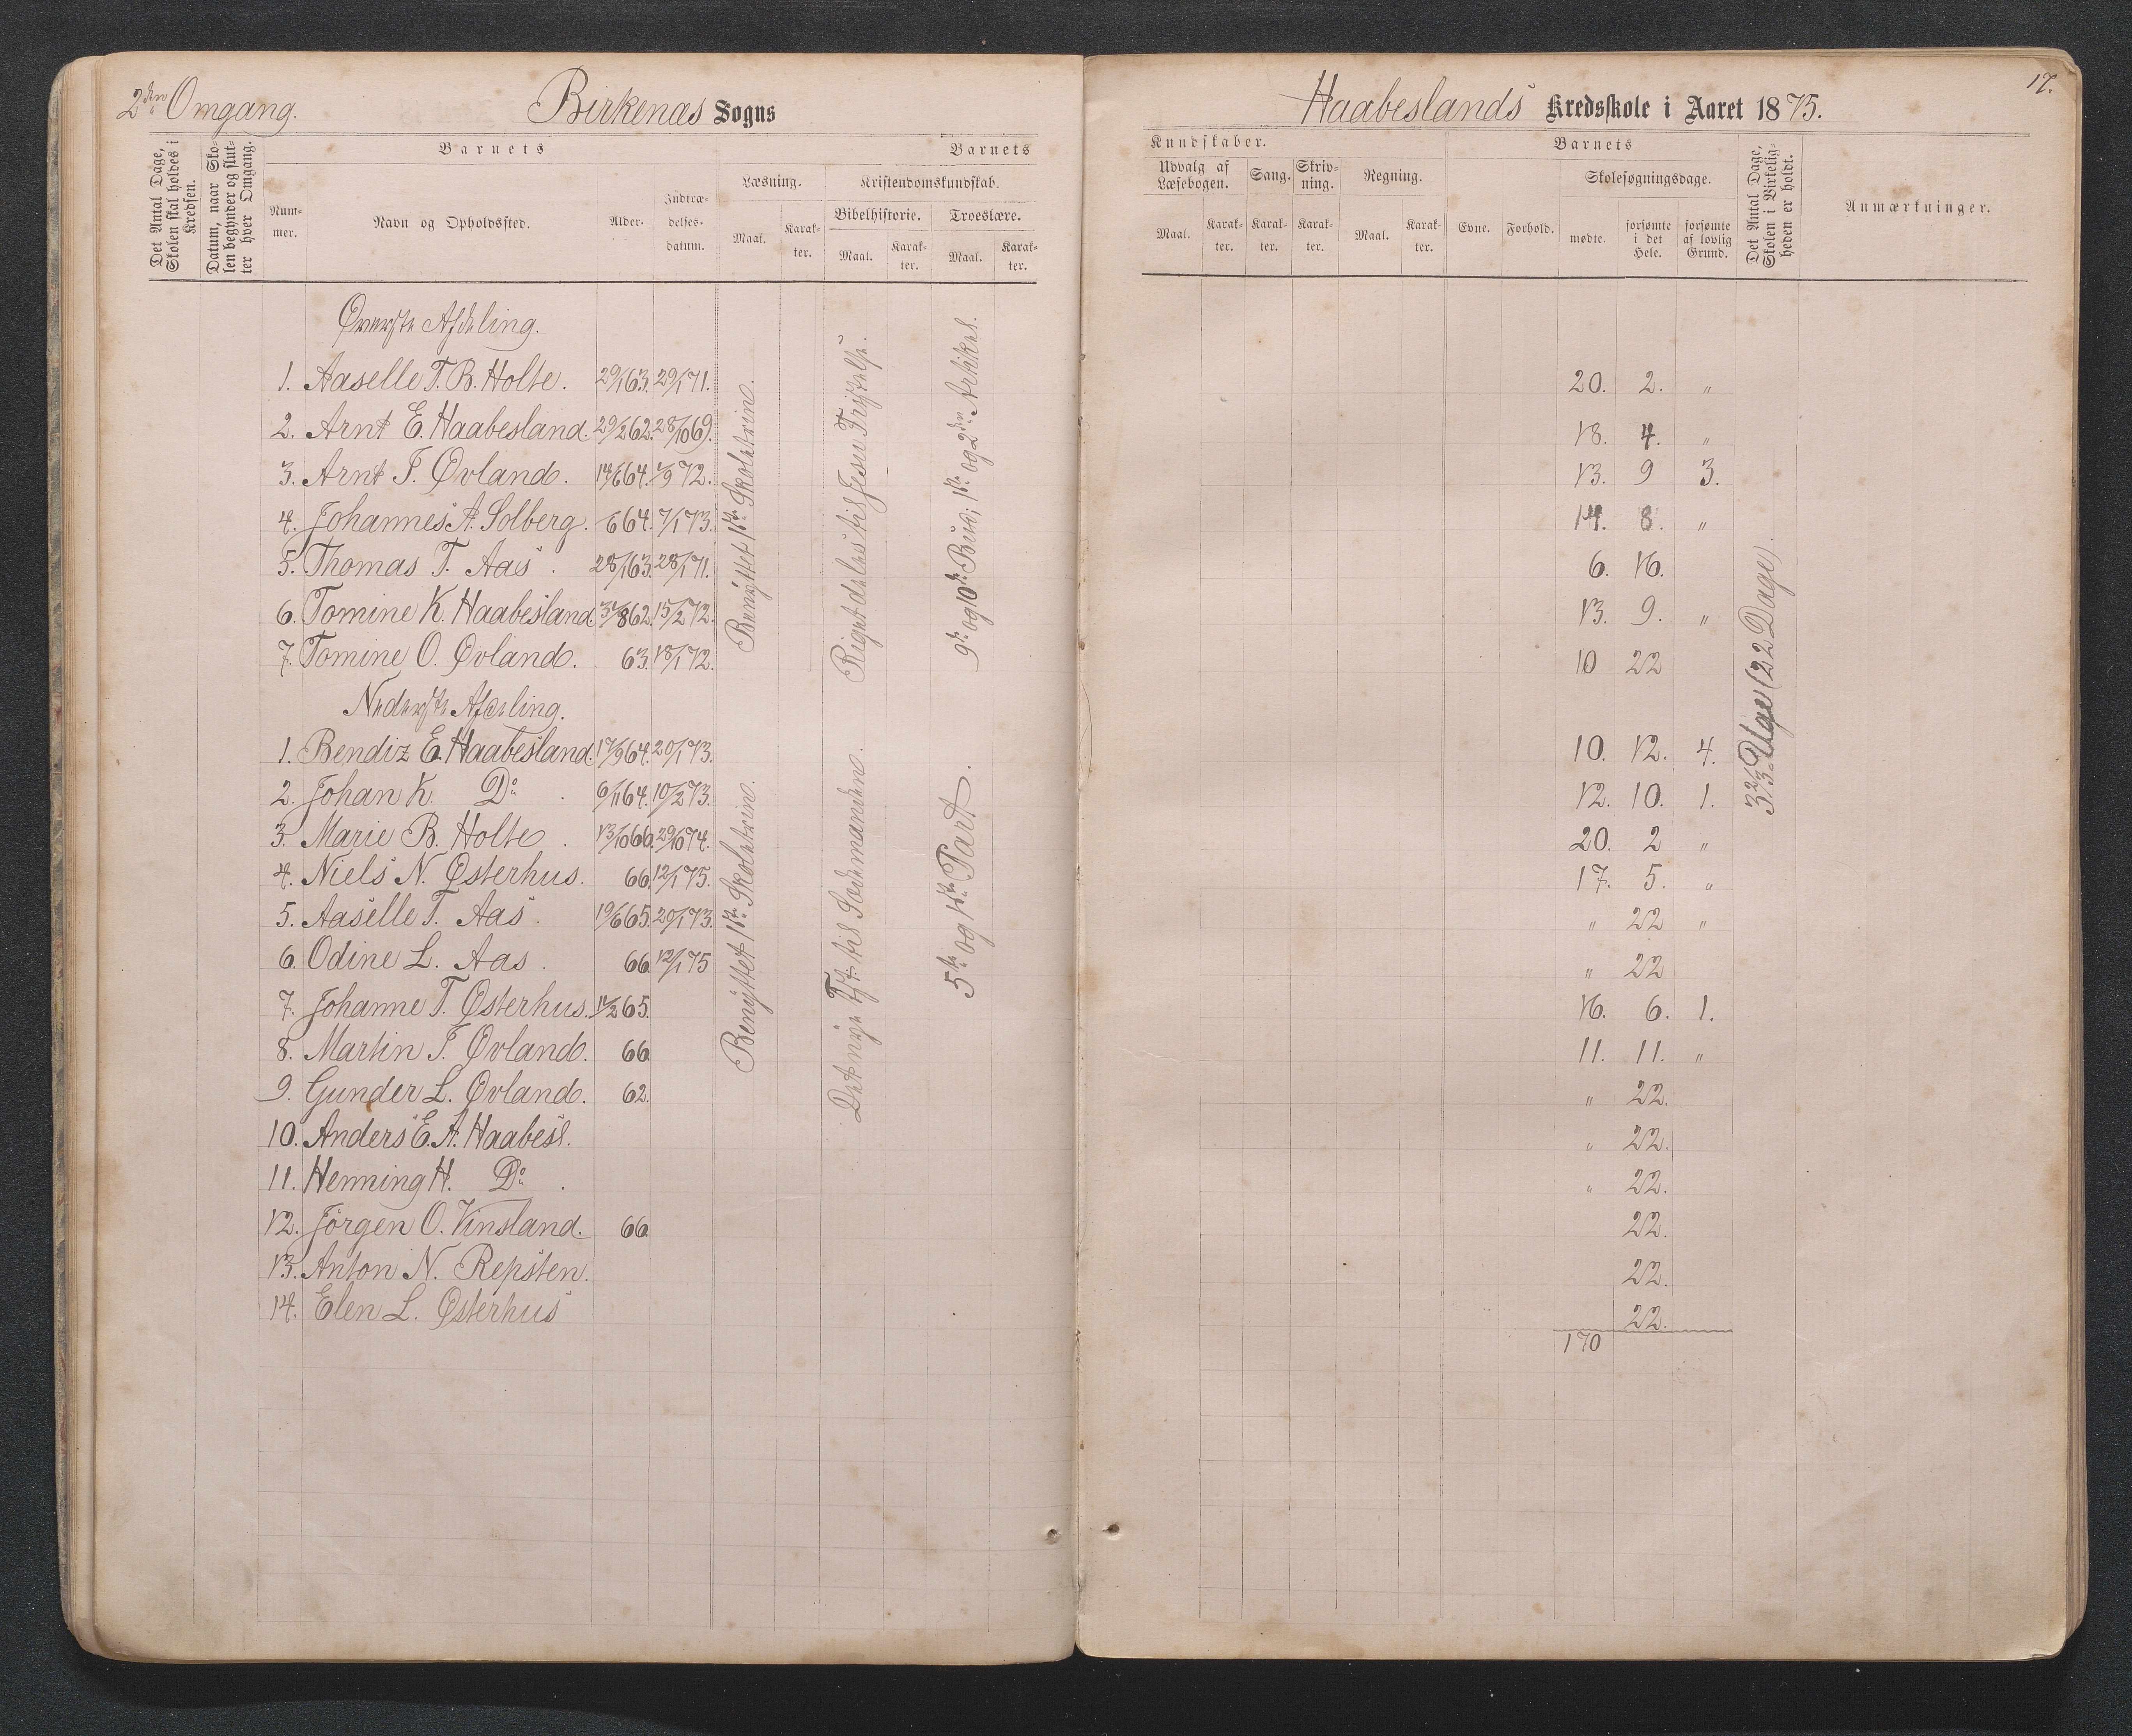 2den Omgang.
Birkenæs Sogns
Det Antal Dage, Skolen skal holdes i Kredsen.
Datum, naar Skolen begynder og slutter hver Omgang.
Barnets
Barnets
Nummer.
Navn og Opholdssted.
Alder.
Indtrædelses-datum.
Læsning.
Kristendomskundskab.
Maal.
Karakter.
Bibelhistorie.
Troeslære.
Maal.
Karakter.
Maal.
Karakter.
Øverste Afdeling.
1. Aaselle T. B. Holte. 29/1 63. 29/1 71.
2. Arnt E. Haabesland. 29/2 62. 28/10 69.
3. Arnt T. Øvland. 14/6 64. 1/9 72.
4. Johannes A. Solberg. 6 64. 7/1 73.
5. Thomas T. Aas. 28/1 63. 28/1 71.
6. Tomine K. Haabesland 31/8 62. 15/2 72.
7. Tomine O. Øvland. 63. 18/1 72.
Nederste Afdeling.
1. Bendiz E. Haabesland. 17/9 64. 20/1 73.
2. Johan K. Do. 6/11 64. 10/2 73.
3. Marie B. Holte. 13/10 66. 29/10 74.
4. Niels N. Østerhus. 66. 12/1 75.
5. Aaselle T. Aas. 19/6 65. 20/1 73.
6. Odine L. Aas. 66 12/1 75
7. Johanne T. Østerhus. 11/2 65.
8. Martin T. Øvland. 66
9. Gunder L. Øvland. 62.
10. Anders E. A. Haabesl.
11. Henning H. Do.
12. Jörgen O. Vinsland. 66
13. Anton N. Repsten.
14. Elen L. Østerhus
Benyttet 1ste Skoletrin.
Riget deles til Jesu Fristelse.
9de og 10de Bud; 1ste og 2den Artikel.
Benyttet 1ste Skoletrin.
Det nye Tst. til Sædemanden.
5te og 1ste Part.
17.
Haabeslands Kredsskole i Aaret 1875.
Kundskaber.
Barnets
Udvalg af Læsebogen.
Sang.
Skrivning.
Regning.
Skolesøgningsdage.
Maal.
Karakter.
Karakter.
Karakter.
Maal.
Karakter.
Evne.
Forhold.
mødte.
forsømte i det Hele.
forsømte af lovlig Grund.
Det Antal Dage, Skolen i Virkeligheden er holdt.
Anmærkninger.
20. 2. "
18. 4. "
13. 9 3.
14. 8. "
6. 16.
13. 9. "
10 22
10. 12. 4.
12. 10. 1.
20. 2 "
17. 5. "
" 22 "
" 22
16. 6. 1.
11. 11. "
" 22.
" 22.
" 22.
22.
22.
22.
170
3 2/3 Uger (22 Dage).